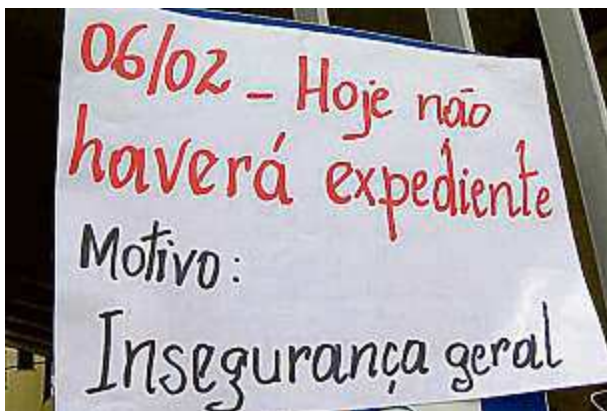 06/02 - Hoje não
haverá expediente
Motivo:
Insegurança geral